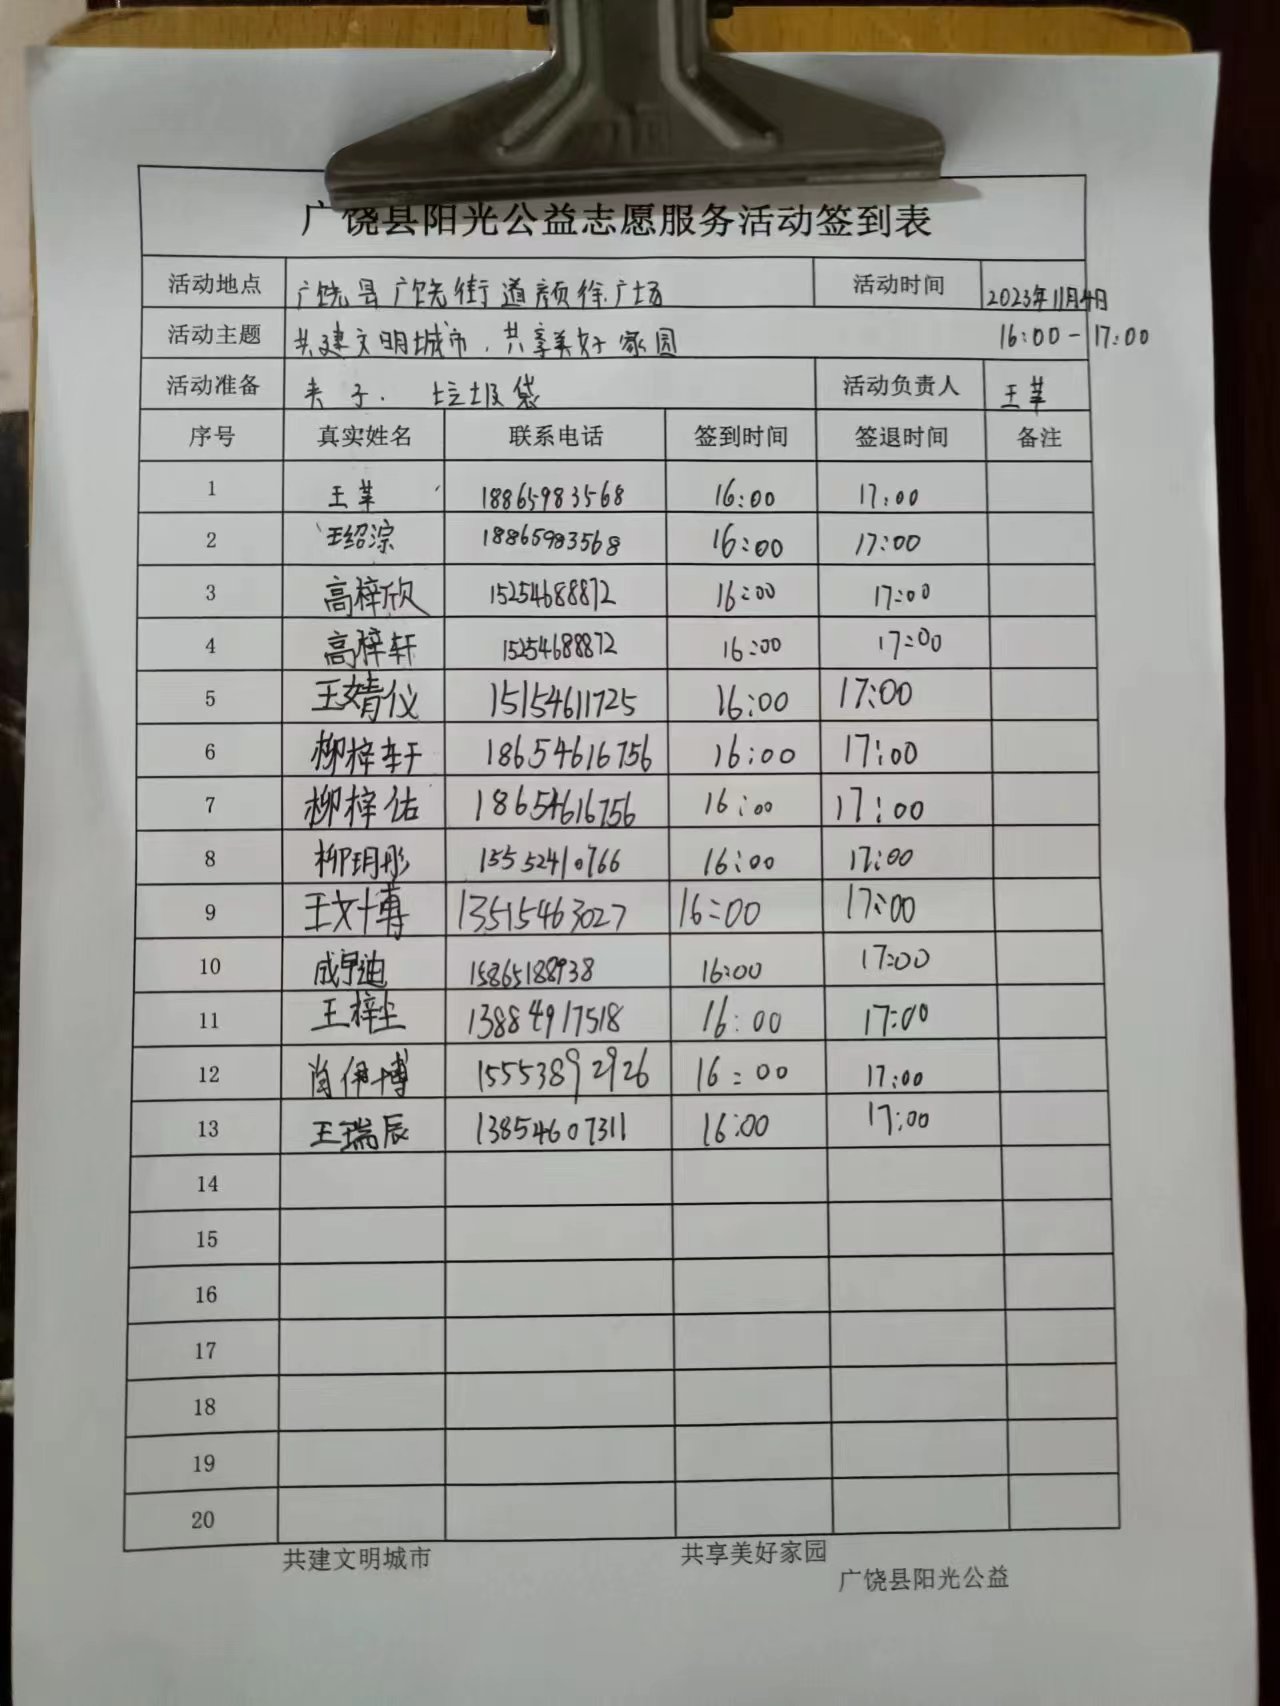 广饶县阳光公益志愿服务活动签到表
活动地点 广饶县广饶街道颜徐广场 活动时间 2023年11月4日
活动主题 共建文明城市.共享美好家园 16:00-17:00
活动准备 夹子. 垃圾袋 活动负责人 王苹
序号 真实姓名 联系电话 签到时间 签退时间 备注
1 王苹 18865983568 16:00 17:00
2 王绍淙 18865983568 16:00 17:00
3 高梓欣 15254688872 16:00 17:00
4 高梓轩 15254688872 16:00 17:00
5 王婧仪 15154611725 16:00 17:00
6 柳梓轩 18654616756 16:00 17:00
7 柳梓佑 18654616756 16:00 17:00
8 柳玥彤 15552410766 16:00 17:00
9 王文博 13515463027 16:00 17:00
10 15865188938 16:00 17:00
11 王梓 13884917518 16:00 17:00
12 肖伊博 15553892926 16:00 17:00
13 王瑞辰 13854607311 16:00 17:00
14
15
16
17
18
19
20
共建文明城市 共享美好家园
广饶县阳光公益